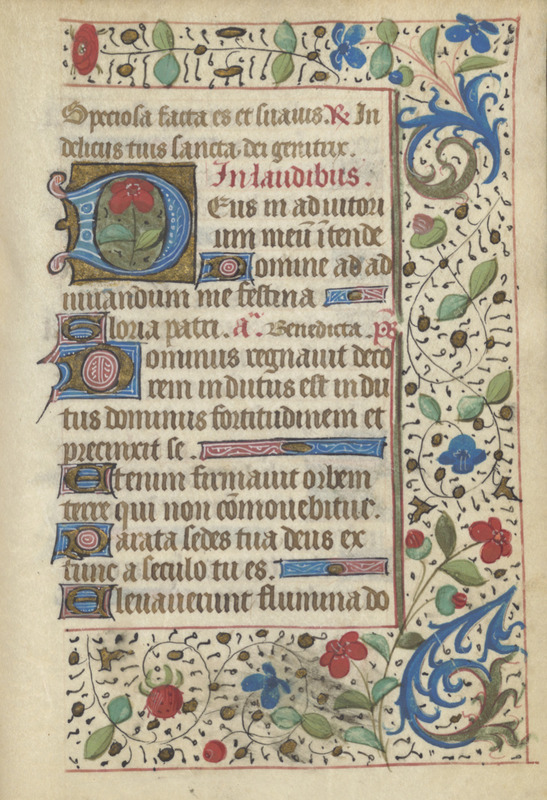 Speciosa facta es et suavis. R In
deliciis tuis sancta dei genitrix.
In laudibus.
Deus in adiutori
um meū ītende
Domine ad ad
iuuandum me festina
Gloria patri. a͞. Benedicta. ps
Dominus regnauit deco
rem indutus est indu
tus dominus fortitudinem et
precinxit se.
Etenim firmauit orbem
terre qui non cōmouebitur.
Parata sedes tua deus ex
tunc a seculo tu es.
Eleuauerunt flumina do